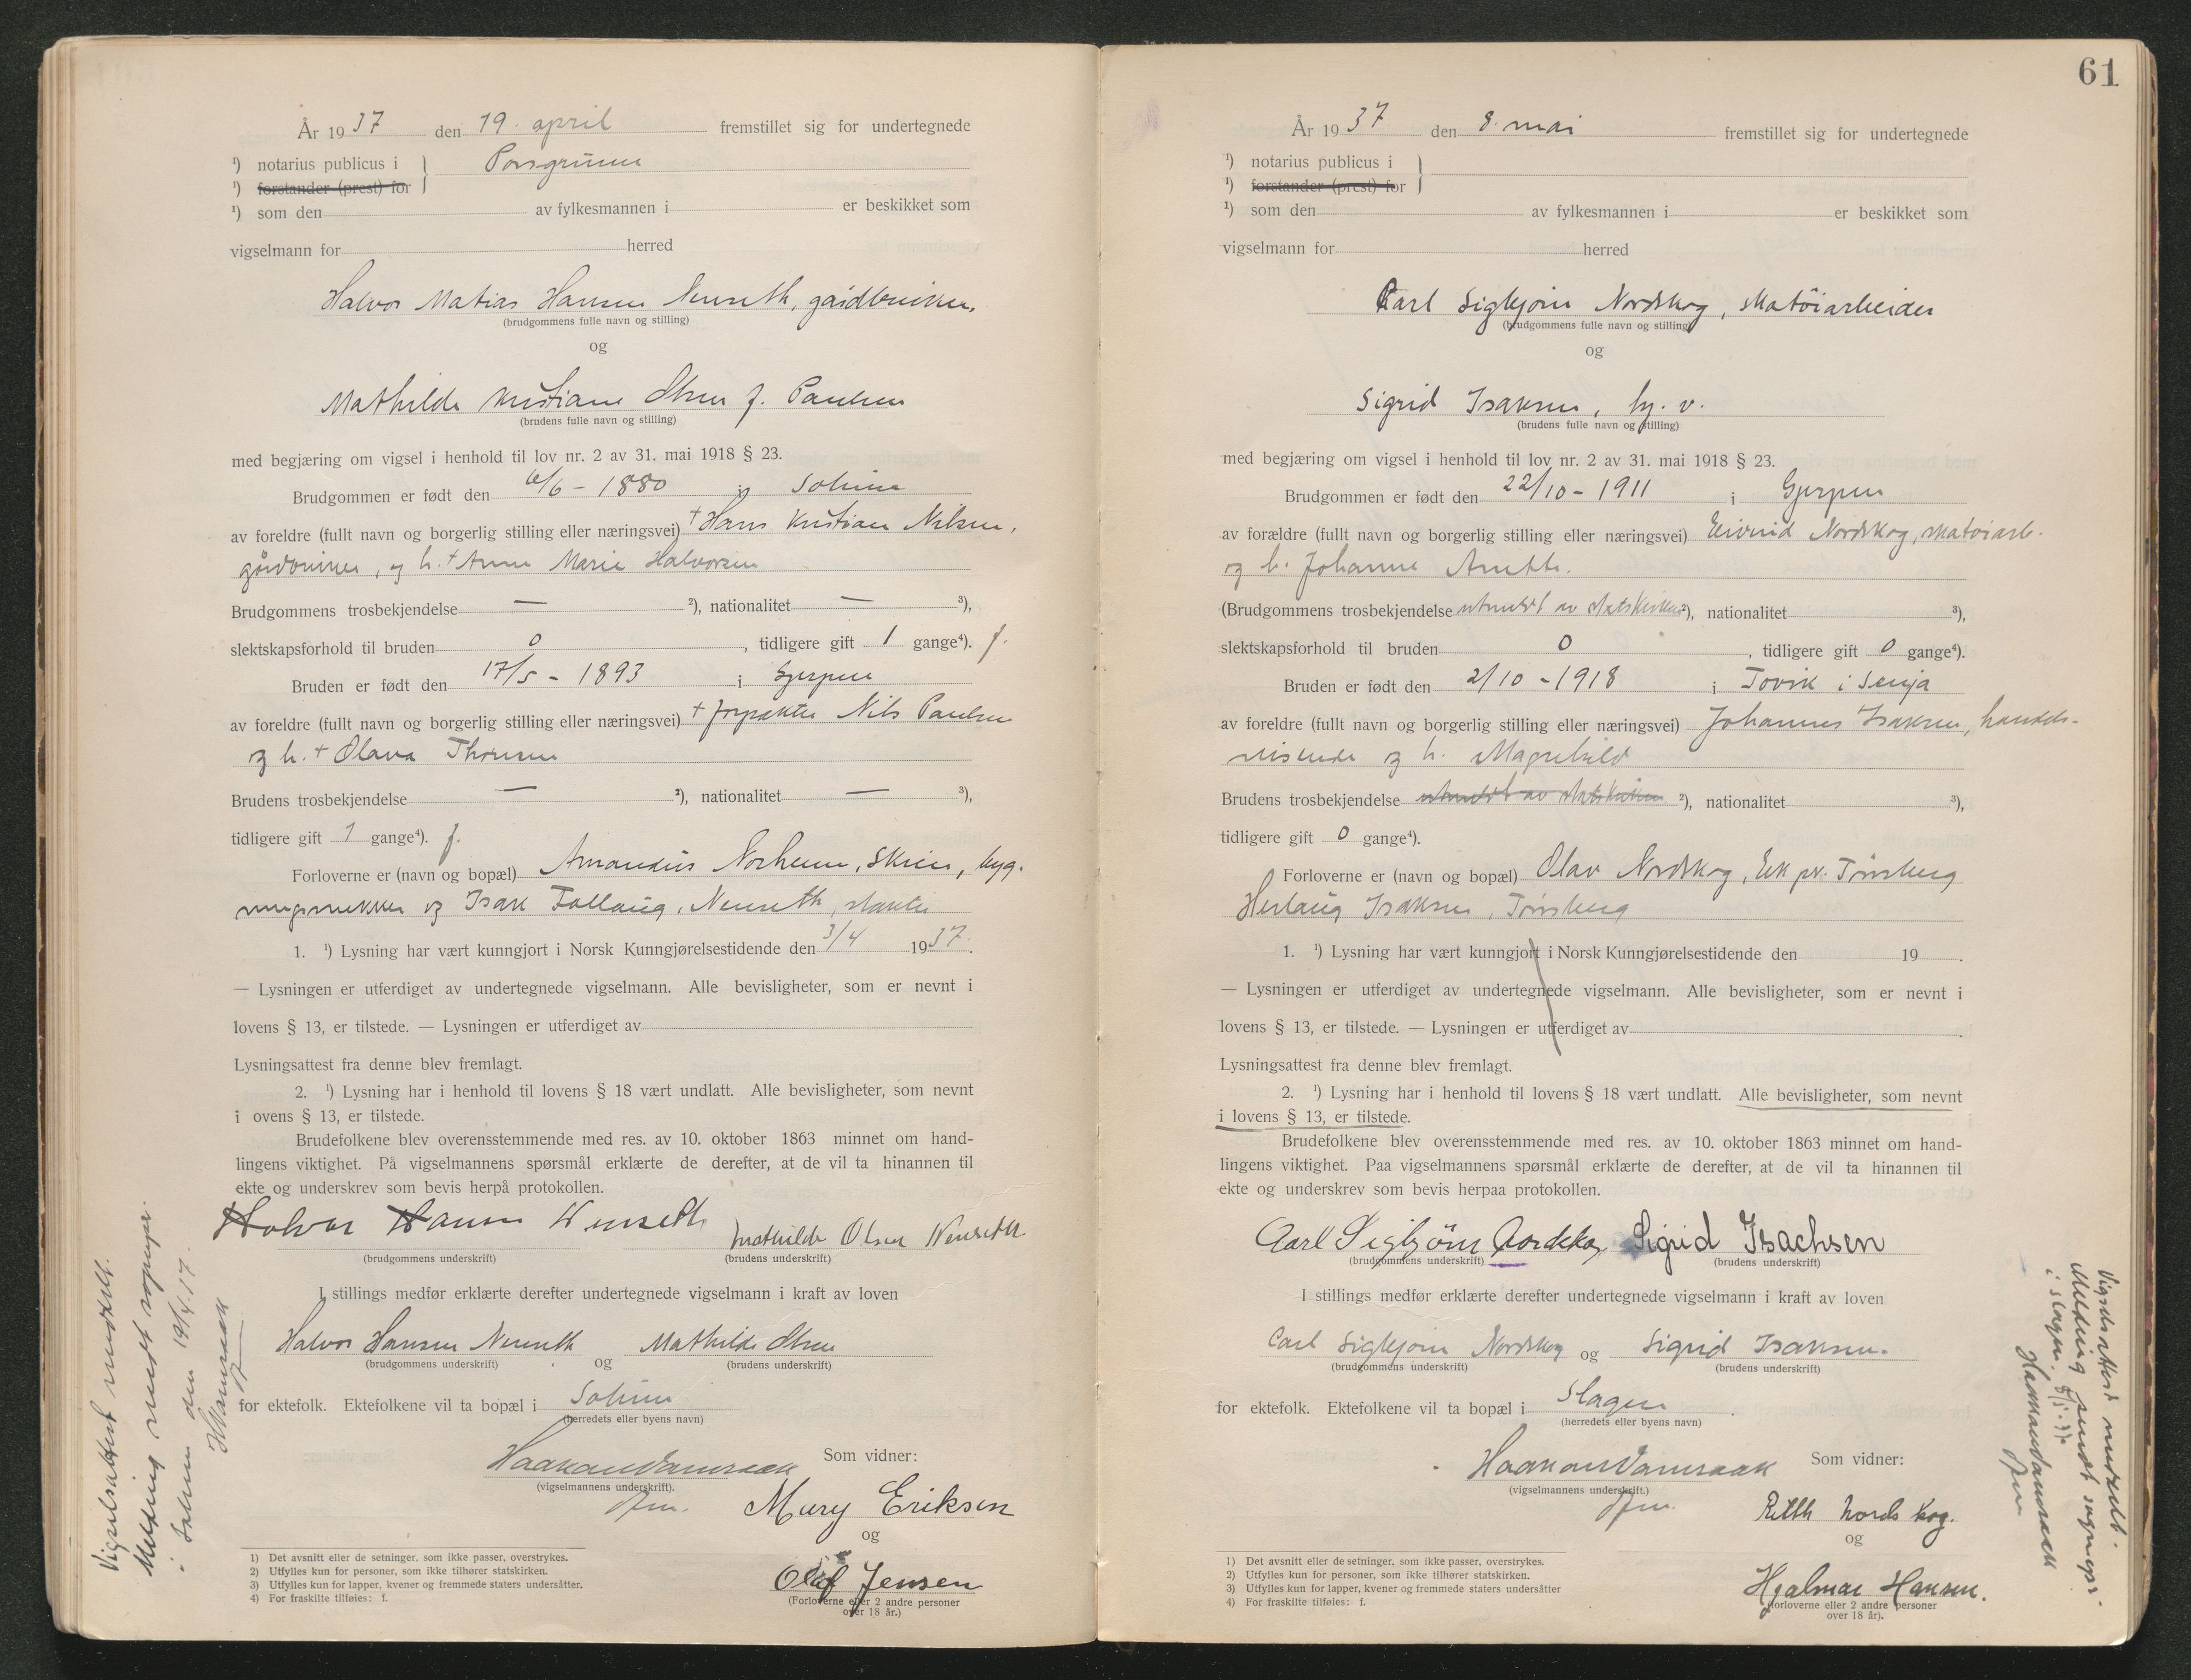 År 1937 den 19. april fremstillet sig for undertegnede
¹) notarius publicus i Porsgrunn
¹) forstander (prest) for
¹) som den av fylkesmannen i er beskikket som
vigselmann for herred
Halvor Matias Hansen Nenseth, gårdbruker,
(brudgommens fulle navn og stilling)
og
Mathilde Kristiane Olsen f. Paulsen
(brudens fulle navn og stilling)
med begjæring om vigsel i henhold til lov nr. 2 av 31. mai 1918 § 23.
Brudgommen er født den 6/6 - 1880 i Solum
av foreldre (fullt navn og borgerlig stilling eller næringsvei) † Hans Kristian Nilsen,
gårdbruker, og h. † Anne Marie Halvorsen
Brudgommens trosbekjendelse — ²), nationalitet — ³),
slektskapsforhold til bruden 0, tidligere gift 1 gange⁴). f.
Bruden er født den 17/5 - 1893 i Gjerpen
av foreldre (fullt navn og borgerlig stilling eller næringsvei) † forpakter Nils Paulsen
og h. † Olava Thorsen
Brudens trosbekjendelse — ²), nationalitet — ³),
tidligere gift 1 gange⁴). f.
Forloverne er (navn og bopæl) Amandus Norheim, Skien, byg-
ningssnekker og Isak Follaug, Nenseth,
1. ¹) Lysning har vært kunngjort i Norsk Kunngjørelsestidende den 3/4 1937.
— Lysningen er utferdiget av undertegnede vigselmann. Alle bevisligheter, som er nevnt i
lovens § 13, er tilstede. — Lysningen er utferdiget av
Lysningsattest fra denne blev fremlagt.
2. ¹) Lysning har i henhold til lovens § 18 vært undlatt. Alle bevisligheter, som nevnt
i ovens § 13, er tilstede.
Brudefolkene blev overensstemmende med res. av 10. oktober 1863 minnet om hand-
lingens viktighet. På vigselmannens spørsmål erklærte de derefter, at de vil ta hinannen til
ekte og underskrev som bevis herpå protokollen.
Halvor Hansen Nenseth Mathilde Olsen Nenseth
(brudgommens underskrift) (brudens underskrift)
I stillings medfør erklærte derefter undertegnede vigselmann i kraft av loven
Halvor Hansen Nenseth og Mathilde Olsen
(brudgommens underskrift) (brudens underskrift)
for ektefolk. Ektefolkene vil ta bopæl i Solum
(herredets eller byens navn)
Som vidner:
(vigselmannens underskrift).
Mury Eriksen
og
Olaf Jensen
(Forloverne eller 2 andre personer
over 18 år.)
1) Det avsnitt eller de setninger, som ikke passer, overstrykes.
2) Utfylles kun for personer, som ikke tilhører statskirken.
3) Utfylles kun for lapper, kvener og fremmede staters undersåtter.
4) For fraskilte tilføies: f.
Vigselsattest meddelt.
Melding sendt sognepr.
i Solum den 19/4 37.
61
År 1937 den 8. mai fremstillet sig for undertegnede
¹) notarius publicus i
¹) forstander (prest) for
¹) som den av fylkesmannen i er beskikket som
vigselmann for herred
Carl Sigbjørn Nordskog, skotøiarbeider
(brudgommens fulle navn og stilling)
og
Sigrid Isaksen, hj. v.
(brudens fulle navn og stilling)
med begjæring om vigsel i henhold til lov nr. 2 av 31. mai 1918 § 23.
Brudgommen er født den 22/10 - 1911 i Gjerpen
av forældre (fullt navn og borgerlig stilling eller næringsvei) Eivind Nordskog, skotøiarb.
og h. Johanne Anette.
(Brudgommens trosbekjendelse utmeldt av statskirken ²), nationalitet ³),
slektskapsforhold til bruden 0, tidligere gift 0 gange⁴).
Bruden er født den 2/10 - 1918 i Tovik i Senja
av foreldre (fullt navn og borgerlig stilling eller næringsvei) Johannes Isaksen, handels-
reisende og h. Magnhild
Brudens trosbekjendelse utmeldt av statskirken ²), nationalitet ³),
tidligere gift 0 gange⁴).
Forloverne er (navn og bopæl) Olav Nordskog, Eik pr. Tønsberg
Herlaug Isaksen, Tønsberg
1. ¹) Lysning har vært kunngjort i Norsk Kunngjørelsestidende den 19 .
— Lysningen er utferdiget av undertegnede vigselmann. Alle bevisligheter, som er nevnt i
lovens § 13, er tilstede. — Lysningen er utferdiget av
Lysningsattest fra denne blev fremlagt.
2. ¹) Lysning har i henhold til lovens § 18 vært undlatt. Alle bevisligheter, som nevnt
i lovens § 13, er tilstede.
Brudefolkene blev overensstemmende med res. av 10. oktober 1863 minnet om hand-
lingens viktighet. Paa vigselmannens spørsmål erklærte de derefter, at de vil ta hinannen til
ekte og underskrev som bevis herpaa protokollen.
Carl Sigbjörn Nordskog Sigrid Isachsen
(brudgommens underskrift) (brudens underskrift)
I stillings medfør erklærte derefter undertegnede vigselmann i kraft av loven
Carl Sigbjørn Nordskog og Sigrid Isaksen.
(brudgommens underskrift) (brudens underskrift)
for ektefolk. Ektefolkene vil ta bopæl i Slagen
(herredets eller byens navn)
Som vidner:
(vigselmannens underskrift.)
Nordskog.
og
Hjalmar Hansen.
(forloverne eller 2 andre personer
over 18 år).
1) Det avsnitt eller de setninger, som ikke passer, overstrykes.
2) Utfylles kun for personer, som ikke tilhører statskirken.
3) Utfylles kun for lapper, kvener og fremmede staters undersåtter
4) For fraskilte tilføies: f.
Vigselsattest meddelt.
Melding sendt sognepr.
i Slagen. 8/5.37